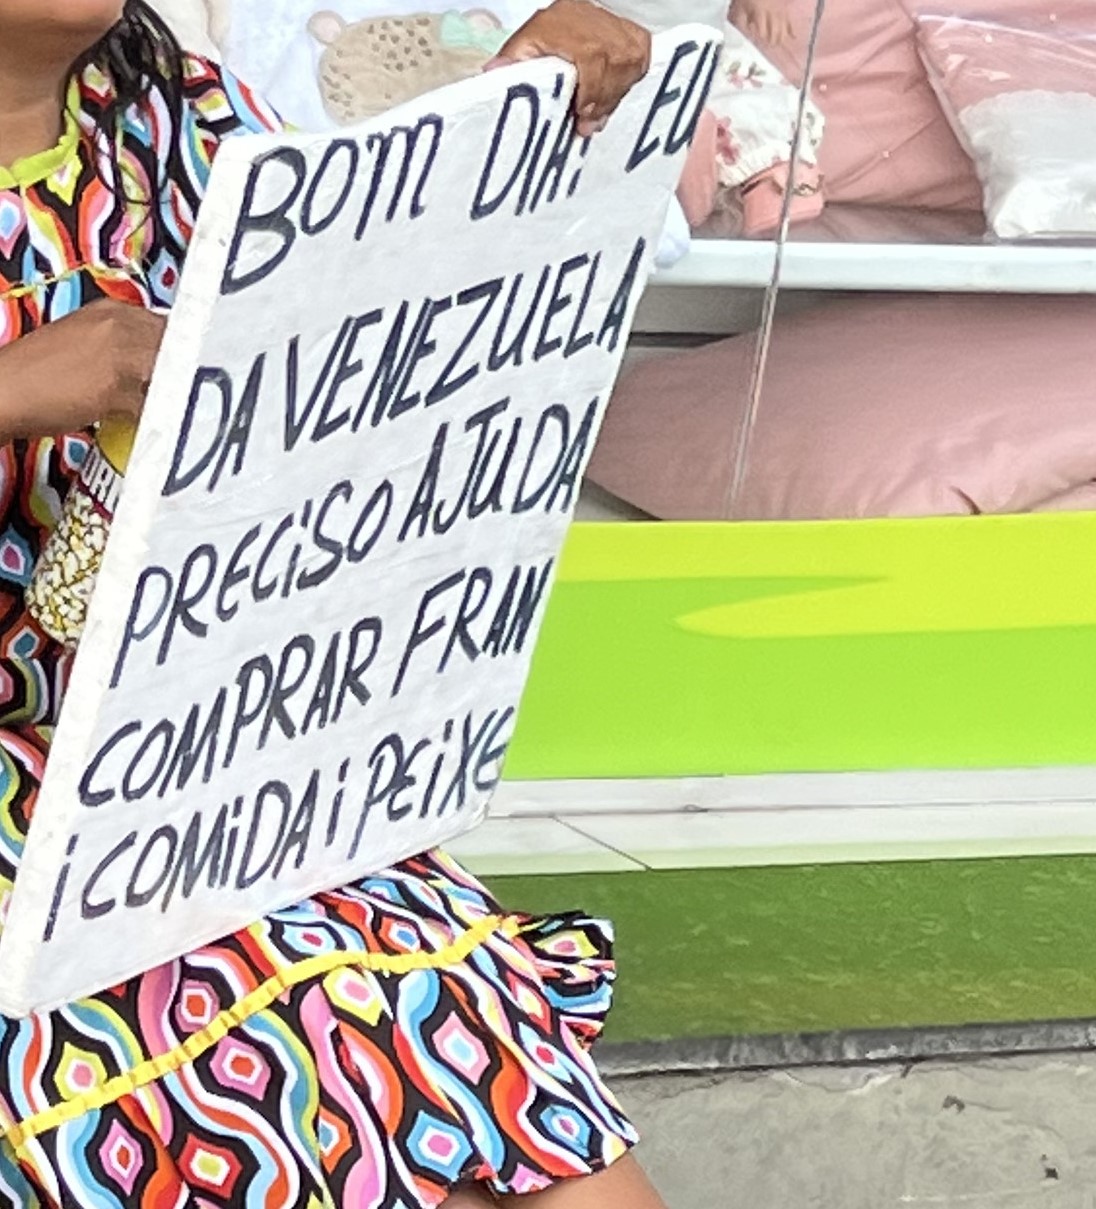 BOM DIA! EU
DA VENEZUELA
PRECISO AJUDA
COMPRAR FRAN
I COMIDA I PEIXE